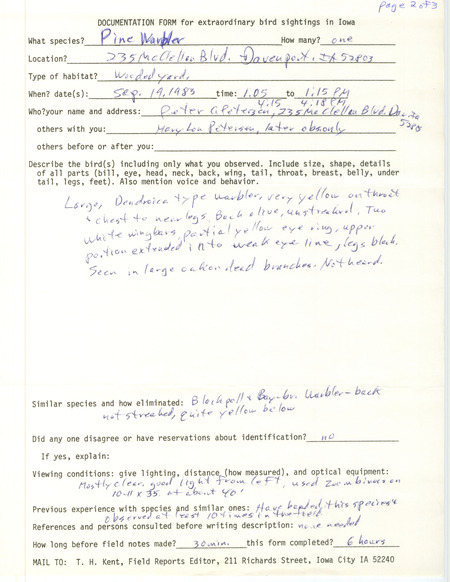 page 2 of 3
DOCUMENTATION FORM for extraordinary bird sightings in Iowa
What species? Pine Warbler How many? one
Location? 235 McClellan Blvd. Davenport, IA 52803
Type of habitat? Wooded yard.
When? date(s): Sep. 19, 1983 time: 1:05 to 1:15 PM
4:15 4:18 PM
Who? your name and address: Peter C. Petersen, 235 McClellan Blvd. Dav. Ia
52803
others with you: Mary Lou Petersen, later obs. only
others before or after you:
Describe the bird(s) including only what you observed. Include size, shape, details
of all parts (bill, eye, head, neck, back, wing, tail, throat, breast, belly, under
tail, legs, feet). Also mention voice and behavior.
Large, Dendroica type warbler, very yellow on throat
& chest to near legs. Back olive, unstreaked. Two
white wingbars, partial yellow eye ring, upper
portion extended into weak eye line, legs black.
Seen in large oak on dead branches. Not heard.
Similar species and how eliminated: Blackpoll & Bay-br. Warbler - back
not streaked, quite yellow below
Did any one disagree or have reservations about identification? no
If yes, explain:
Viewing conditions: give lighting, distance (how measured), and optical equipment:
Mostly clear, good light from left, used zoom binocs on
10-11 x 35 at about 40'
Previous experience with species and similar ones: Have banded this species &
observed at least 10 times in the field
References and persons consulted before writing description: none needed
How long before field notes made? 30 min. this form completed? 6 hours
MAIL TO: T. H. Kent, Field Reports Editor, 211 Richards Street, Iowa City IA 52240